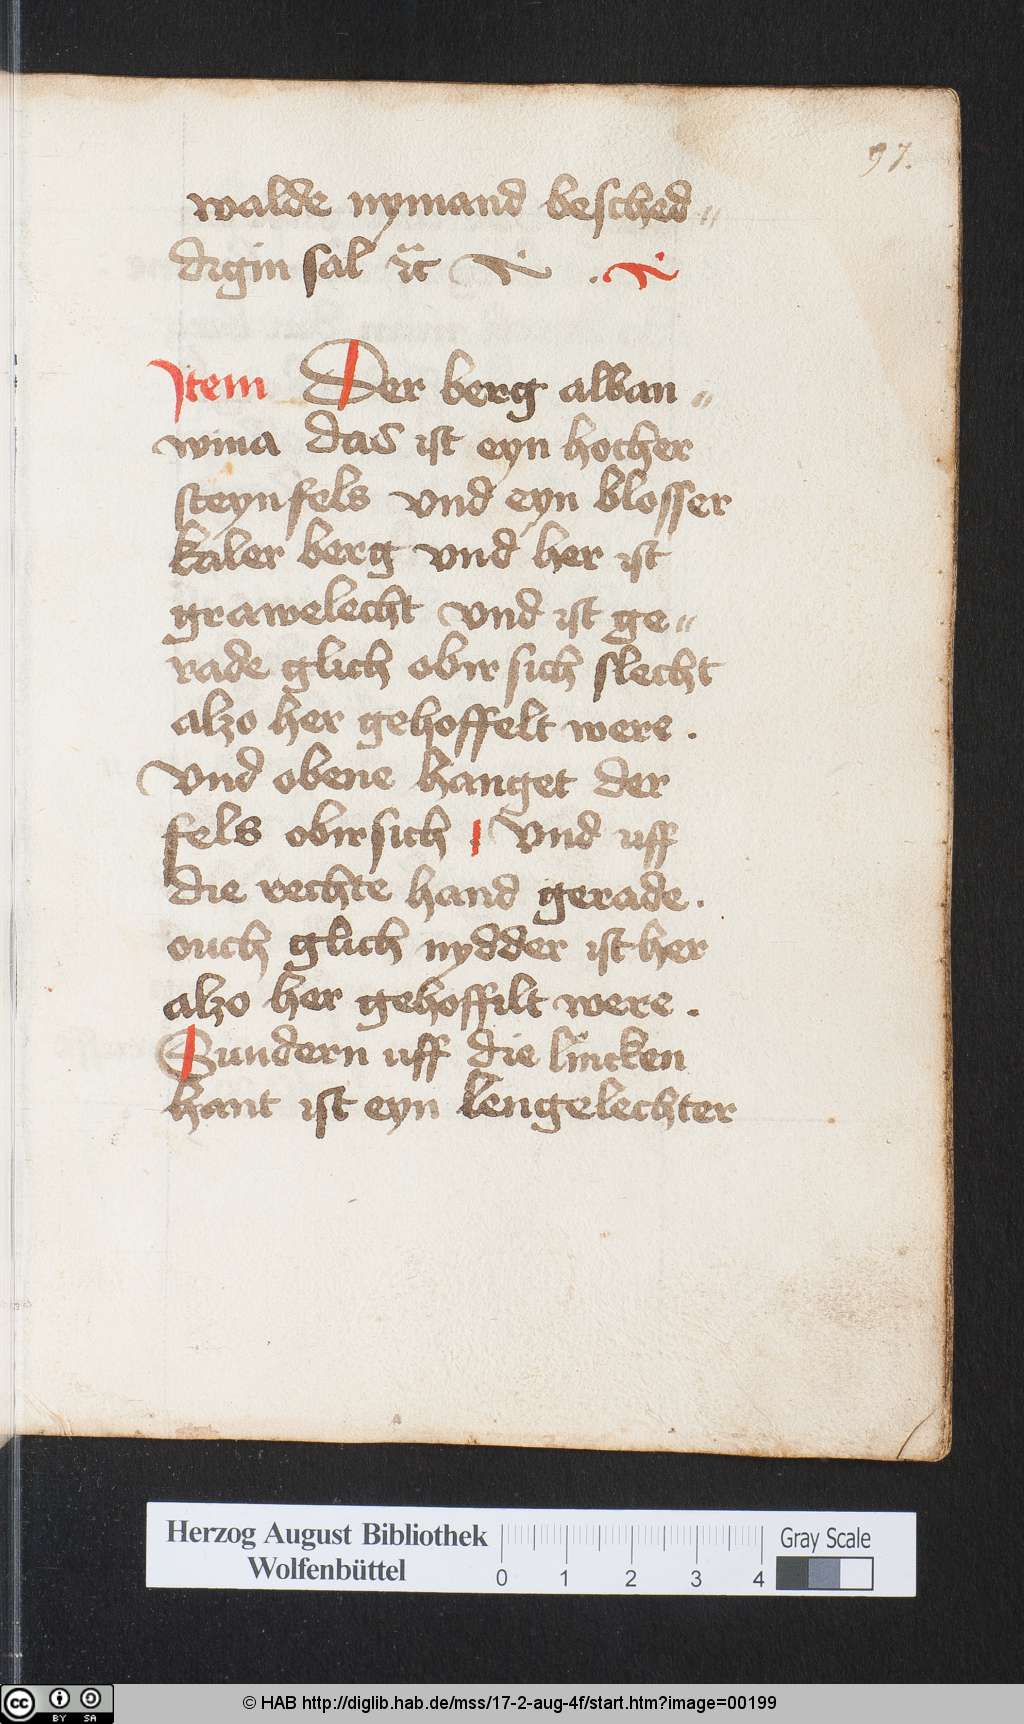 97.
walde nymand besched„
digin sal ꝛc̈
Item Der berg alban„
wina das ist eyn hocher
steynfels vnd eyn blosser
kaler berg vnd her ist
grawelecht vnd ist ge„
rade glich obir sich slecht
alzo her gehoffelt were .
Vnd obene hanget der
fels obir sich | Vnd uff
die rechte hand gerade .
ouch glich nydder ist her
alzo her gehoffilt were .
Sundern uff die lincken
hant ist eyn lengelechter
Herzog August Bibliothek
Wolfenbüttel
0 1 2 3 4
Gray Scale
cc BY SA
© HAB http://diglib.hab.de/mss/17-2-aug-4f/start.htm?image=00199